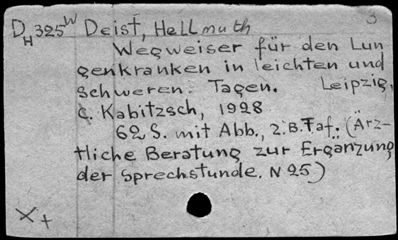 3
D_H 325^W Deist, Hellmuth
Wegweiser für den Lun
genkranken in leichten und
schweren Tagen. Leipzig,
C. Kabitzsch, 1928
62 S. mit Abb., 2.B.Taf. (Ärz-
tliche Beratung zur Ergänzung
der Sprechstunde. N 25)
X+